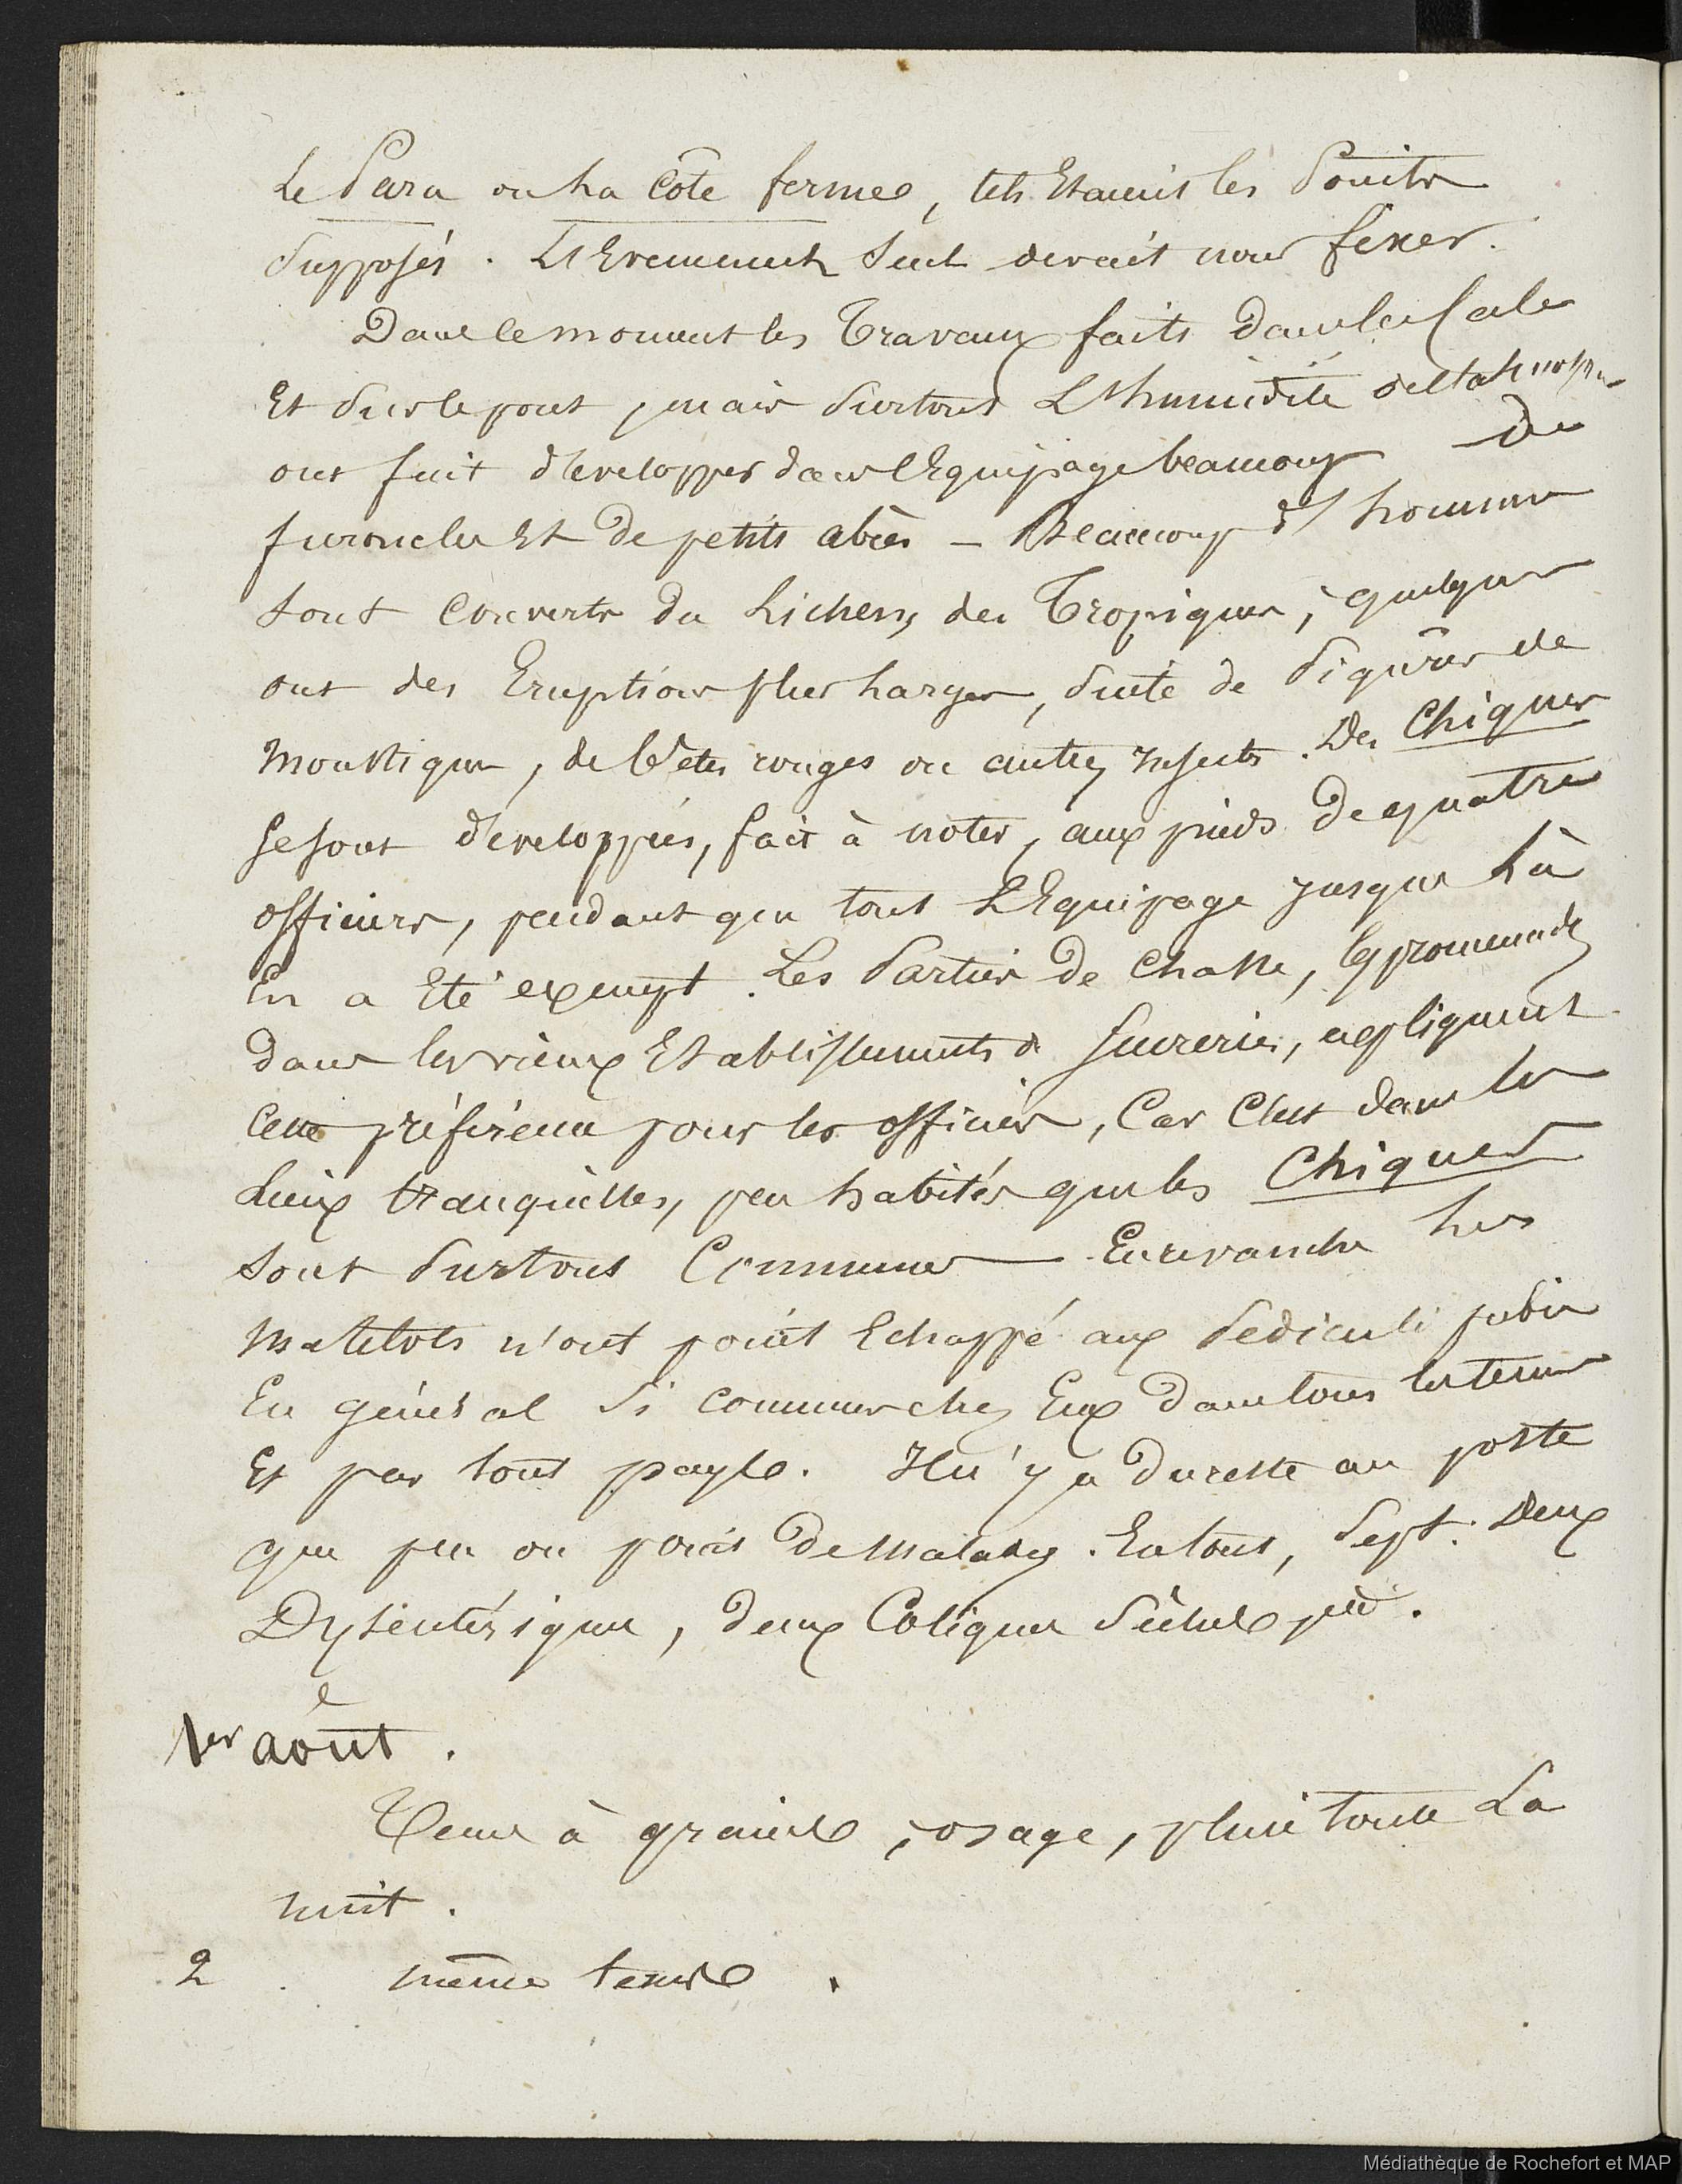 Le Para ou La Côte ferme, tels Etaient les Points
Supposés. L'Evenement Seul devait nous fixer.
Dans le moment les Travaux faits dans la Cale
Et Sur le pont, mais Surtout L'humidité de l'atmosp.
ont fait développer dans l'Equipage beaucoup de
furoncles Et de petits abcès – Beaucoup d'hommes
sont couverts du Lichen, des Tropiques, quelques
ont des Eruptions plus Larges, Suite de Piqûres de
Moustiques, de bêtes rouges ou autres insectes. Des Chiques
se sont développées, fait à noter, aux pieds de quatre
officiers, pendant que tout L'Equipage jusque Là
En a Eté exempt. Les Parties de Chasse, les promenades
dans les vieux Etablissements de Sucreries, expliquent
Cette préférence pour les officiers, Car C'est dans les
Lieux tranquilles, peu habités que les Chiques
sont Surtout Communes – En revanche Les
Matelots n'ont point Echappé aux Pediculi pubis
En général Si communs chez Eux dans tous les tems
Et par tout pays. Il n'y a du reste au poste
que peu ou point de Malades. En tout, Sept. Deux
Dysentériques, deux Coliques Sèches
1er août.
Tems à grains, orage, pluie toute La
nuit.
2 . même tems .
Médiathèque de Rochefort et MAP